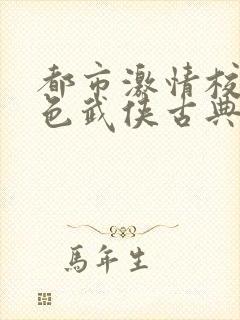 都市激情校
色武侠古典
馬年生